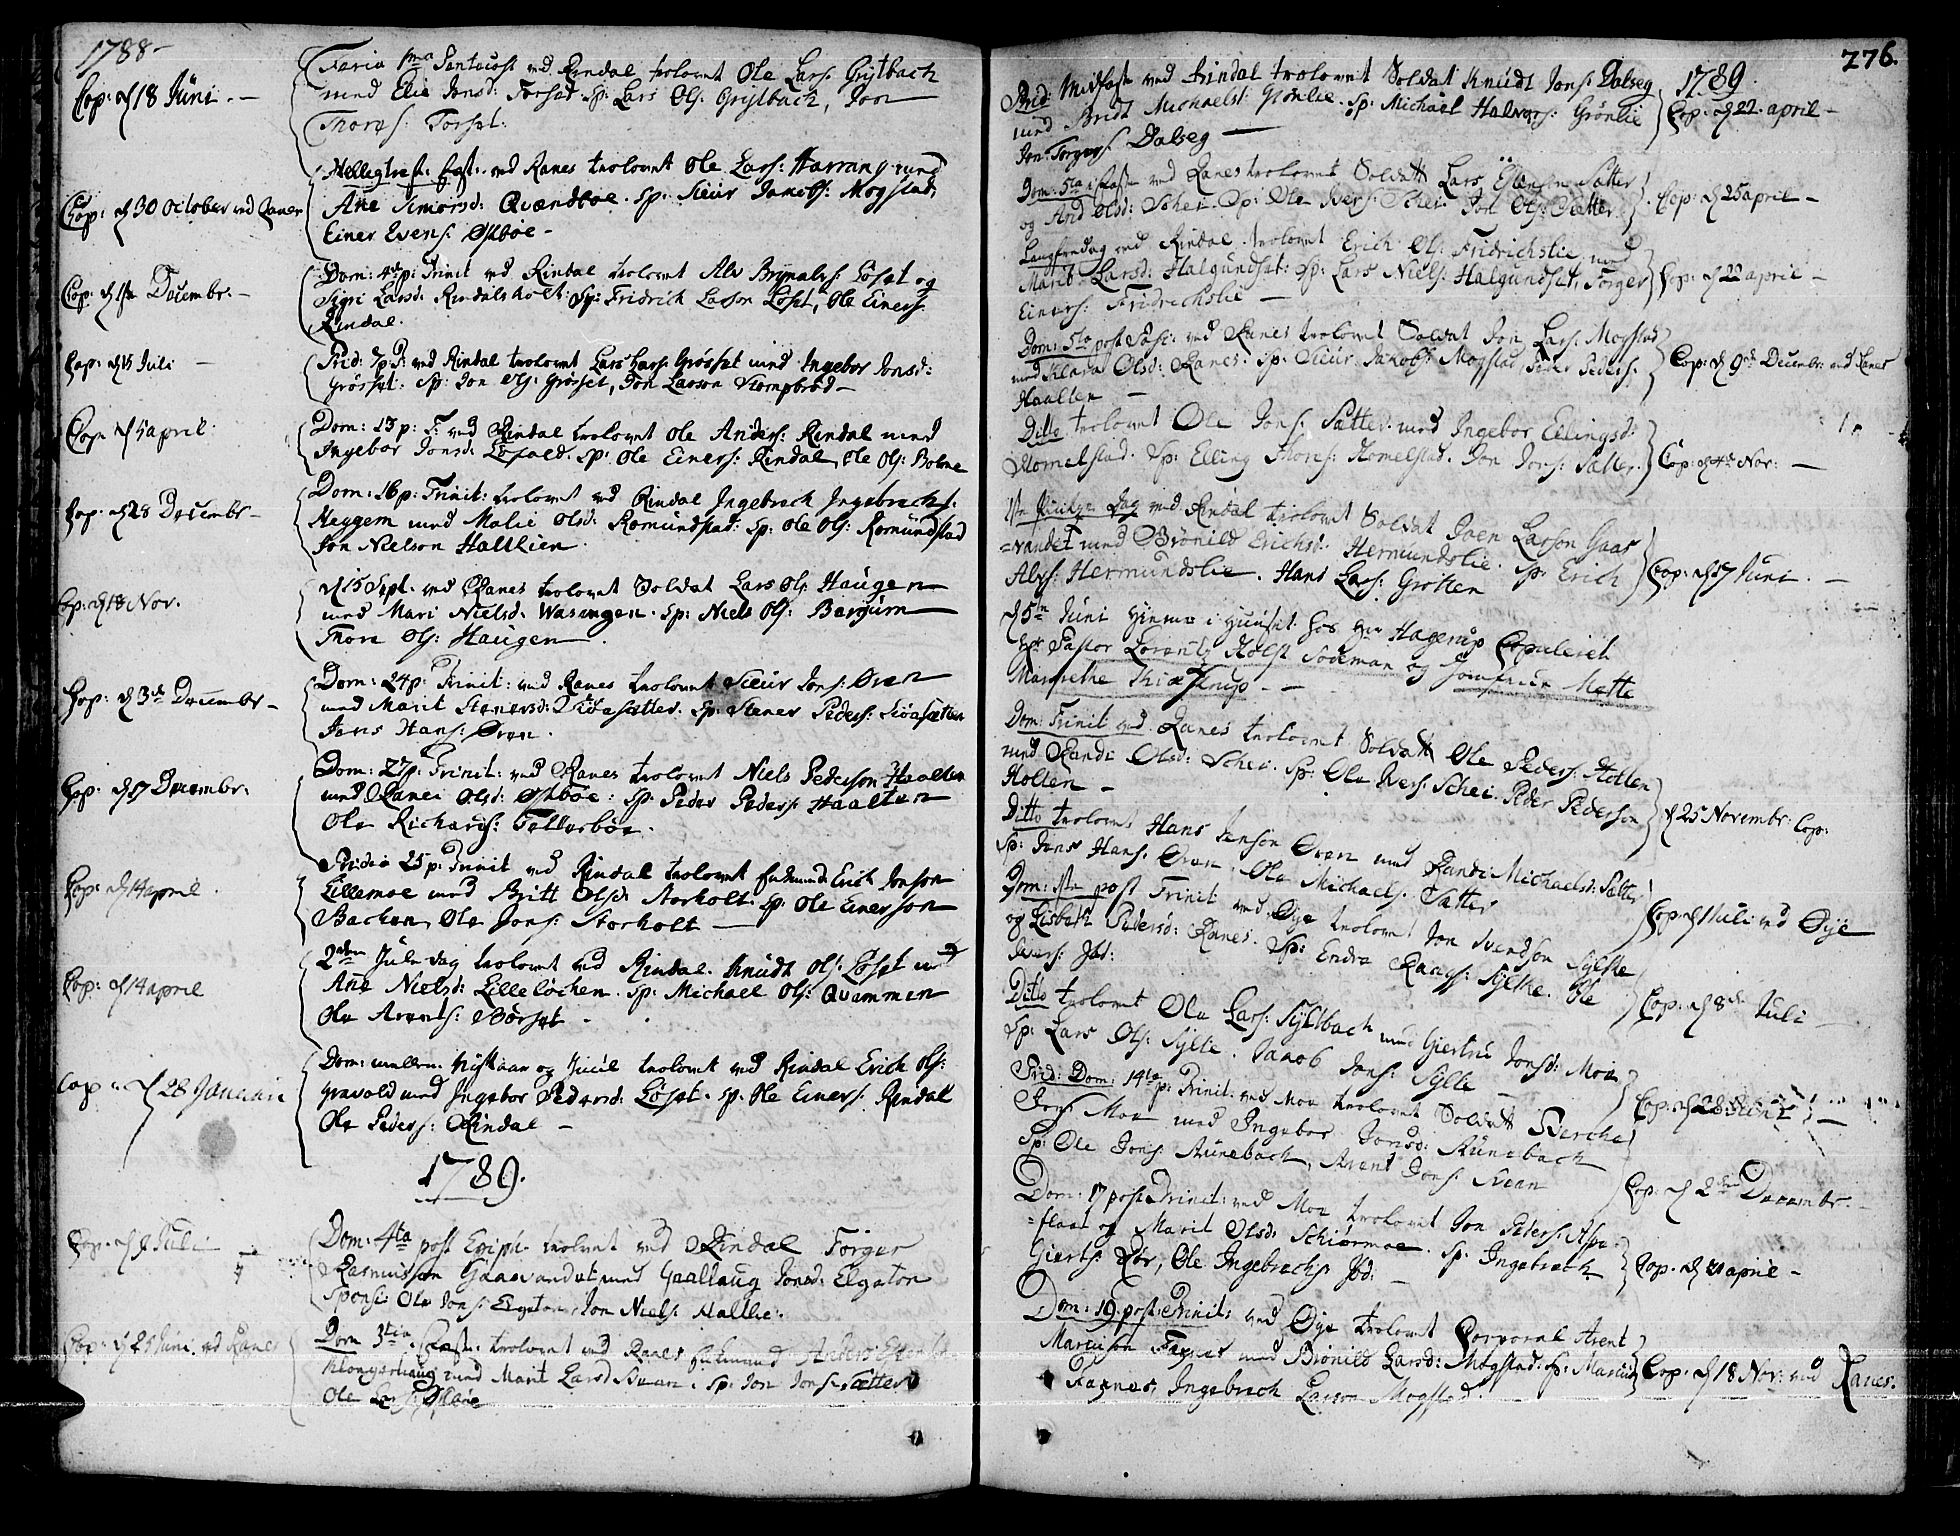 1788 -
Cop: d 18 Juni. -
Feria 1ma Pentecost ved Rindal trolovet Ole Lars: Grytbach
med Elie Jonsd: Forset. Sp: Lars Ols: Grytbach, Jon
Thores: Forset.
Cop: d 30 October ved Ranes
Helligtrefs: fest: ved Ranes trolovet Ole Lars: Harrang med
Ane Simonsd: Qvendboe. Sp: Siur Jacobs: Mogstad,
Einer Evens: Østbøe -
Cop: d 1te Decembr. -
Dom: 4de p: Trinit ved Rindal trolovet Alv Brynalvs: Løset og
Sigri Larsd: Rindalsholt. Sp: Fridrich Larson Løset, Ole Einers:
Rindal.
Cop: d 15 Juli -
Dom: 7 p: T: ved Rindal trolovet Lars Lars: Grøset med Ingebor Jonsd:
Grøset. Sp: Jon Ols: Grøset, Jon Larson Stompbrød -
Cop d 5 april.
Dom: 13 p: T: ved Rindal trolovet Ole Anders: Rindal med
Ingebor Jonsd: Løsvold. Sp: Ole Einers: Rindal, Ole Ols: Bolme
Cop: d 28 Decembr -
Dom: 16 p: Trinit: trolovet ved Rindal Ingebrech Ingebrechs:
Heggem med Malie Olsd: Romundstad: Sp: Ole Ols: Romundstad
Jon Nielson Halllien.
Cop: d 18 Nov.
d 15 Sept. ved Ranes trolovet Soldat Lars Ols: Haugen
med Mari Nielsd: Wasengen. Sp: Niels Ols: Bergum
Thore Ols: Haugen.
Cop: d 3de Decembr -
Dom: 24 p: Trinit: ved Ranes trolovet Siur Jons: Øren
med Marit Stenersd: Siøasetter. Sp: Stener Peders: Siøasetter
Jens Hans: Øren.
Cop: d 17 Decembr.
Dom: 27 p: Trinit: ved Ranes trolovet Niels Pederson Haalten
med Ranei Olsd: Østbøe: Sp: Peder Peders: Haalten
Ole Richards: Tellesbøe.
Cop: d 14 april.
25 p: Trinit ved Rindal trolovet Enkemand Erich Jonson
Lillemoe med Britt Olsd: Storholt. Sp: Ole Einerson
Backen, Ole Jons: Storholt -
Cop: d 14 april
2den Jule dag trolovet ved Rindal. Knudt Ols: Løset med
Ane Nielsd: Lilleløcken. Sp: Michael Ols: Qvammen
Ole Arents: Børset -
Cop: d 28 Januari
Dom: mellem Nyt aar og Juul trolovet ved Rindal Erich Ols:
med Ingebor Pedersd: Løset. Sp: Ole Einers: Rindal
Ole Peders: Rindal -
1789.
Cop: d Juli
Dom: 4ta post Epiph. trolovet ved Rindal Torger
Rasmusson Gaasvandet med Gaallaug Jonsd: Elgaton
Sponsi: Ole Jons: Elgaton, Jon Niels: Halllie.
Cop: d 25 Juni. ved Ranes
Dom 3tia i Faste: trolovet ved Ranes Enkemand Anders
med Marit Larsd Svean. Sp: Jon Jons: Sætter
Ole Lars: Østbøe
276.
Midfaste ved Rindal trolovet Soldat Knudt Jons: Dalseg
med Bridt Michaelsd: Grønlie. Sp: Michael Halvors: Grønlie
Jon Torgers: Dalseg -
1789.
Cop: d 22. april -
Dom: 5ta i Faste ved Ranes trolovet Soldatt Lars Sætter
og And Olsd: Schei. Sp: Ole Ivers: Schei. Jon Ols: Sætter
Cop: d 25 april -
Langfredag ved Rindal trolovet Erich Ols: Fridrichslie med
Maribe Larsd: Halgundset: Sp: Lars Niels: Halgundset, Torger
Einers: Fridrichslie -
Cop: d 22 april -
Dom: 5ta post Pasc: ved Ranes trolovet Soldat Jon Lars: Mogstad
med Klara Olsd: Ranes. Sp: Siur Jakobs: Mogstad, Peder Peders:
Haalten -
Cop: d 9de Decembr: ved Ranes
Ditto trolovet Ole Jons: Sætter med Ingebor Ellingsd:
Homelstad. Sp: Elling Thores: Homelstad. Jon Jons: Sætter.
Cop: d 4de Nov: -
1ste Pintze Dag ved Rindal trolovet Soldat Joen Larson Gaas
=vandet med Brønild Erichsd: Hermundslie. Sp: Erich
Alvs: Hermundslie. Hans Lars: Grotten
Cop: d 17 Juni. -
d 5te Juni hiemme i Huuset hos Hr Hagerup Copuleret
Hr Pastor Lorentz Holst Sodeman og Jomfrue Mette
Margrethe Kierstrup - -
Dom: Trinit ved Ranes trolovet Soldatt Ole Peders: Holten
med Randi Olsd: Schei. Sp: Ole Ivers: Schei. Peder Pederson
Holten -
d 25 Novembr: Cop:
Ditto trolovet Hans Jenson Øren med Randi Michaelsd: Sætter
Sp: Jens Hans: Øren. Ole Michaels: Sætter
Dom: 1ste post Trinit ved Øye trolovet Jon Svendson Sylte
og Lisbeth Pedersd: Ranes. Sp: Endre Sylte. Ole
Ivers: Ibd:
Cop d 1 Juli ved Øye
Ditto trolovet Ole Lars: Syltbach med Giertru Jonsd: Moe
Sp: Lars Ols: Sylte. Jacob Jens: Sylte -
Cop: d 8de Juli -
Dom: 14de p: Trinit: ved Moe trolovet Soldatt Berthe
Jons: Moe med Ingebor Jonsd: Runebach
Sp: Ole Jons: Runebach, Arent Jons: Svean
Cop: d 28
Dom: 17 post Trinit: ved Moe trolovet Jon Peders: Aspe
=flaat og Marit Olsd: Schiermoe. Sp: Ingebrech
Gierts: Rør, Ole Ingebrechs: Ibd. -
Cop: d 2den Decembr. -
Cop: d april -
Dom: 19. post: Trinit: ved Øye trolovet Corporal Arent
Marcuson Fagnes med Brønild Larsd: Mogstad. Sp: Marcus
Fagnes, Ingebrech Larson Mogstad.
Cop: d 18 Nov: ved Ranes.